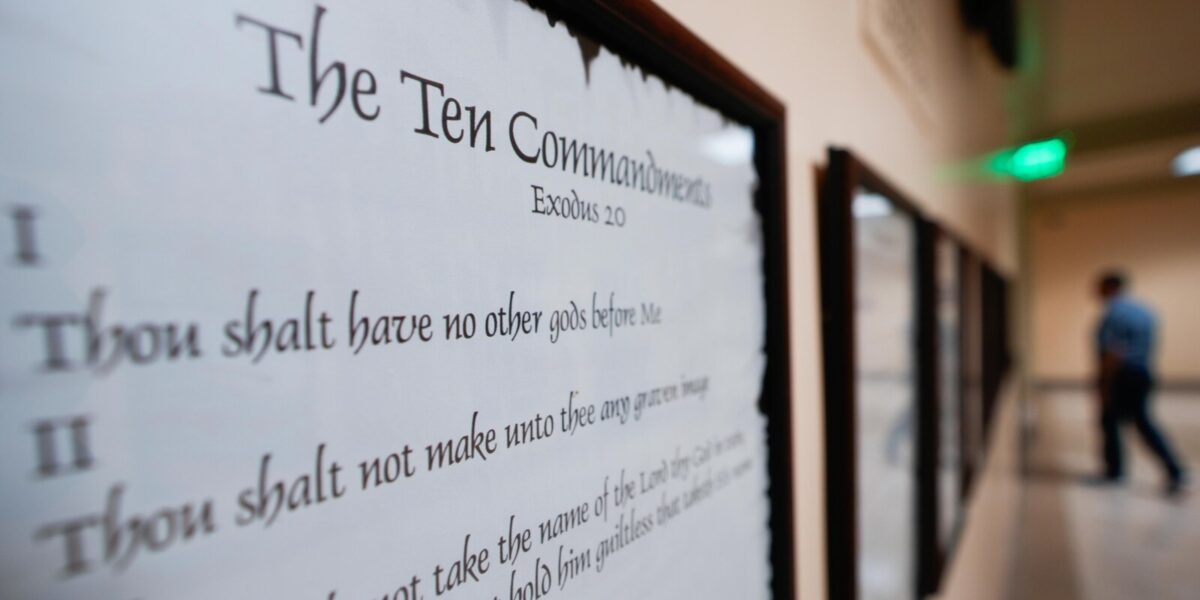 The Ten Commandments
Exodus 20
I
Thou shalt have no other gods before Me
II
Thou shalt not make unto thee any graven image
not take the name of the Lord thy God in
hold him guiltless that taketh his name